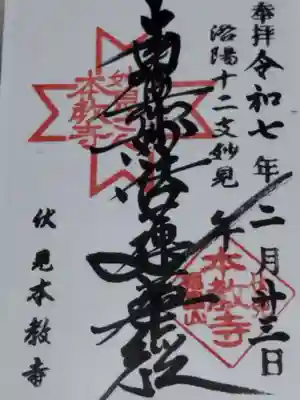 奉拝 令和七年二月廿三日
洛陽十二支妙見 午
南無妙法蓮華経
妙見宮
本教寺
本教寺
伏見本教寺